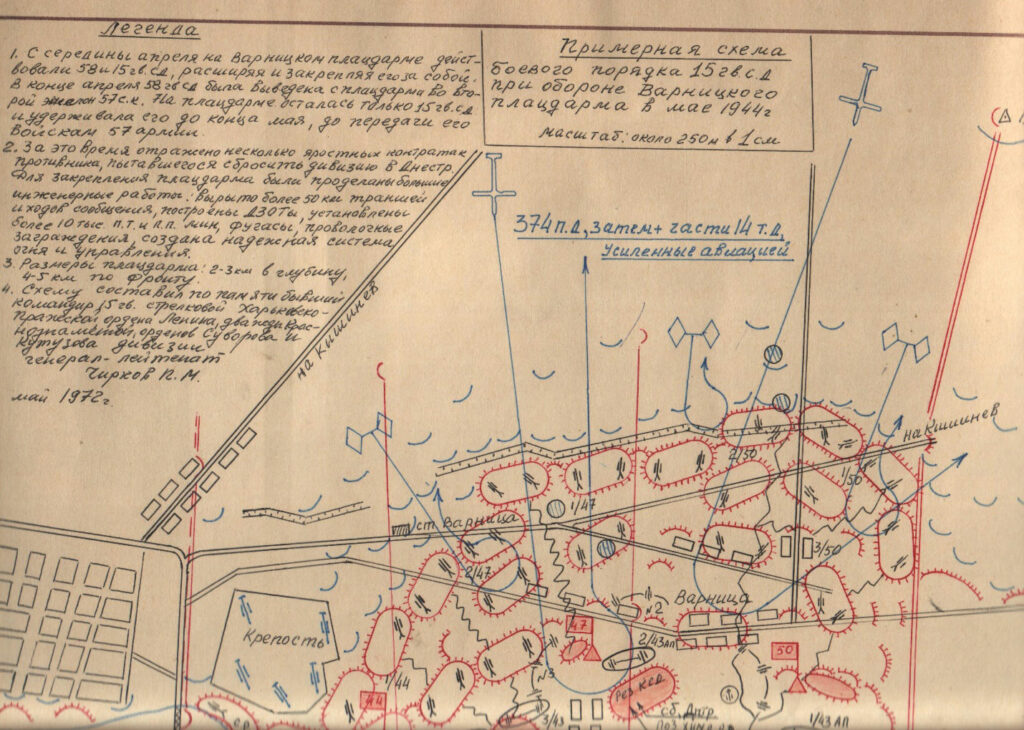 Легенда
1. С середины апреля на Варницком плацдарме дейст-
вовали 58 и 15 гв.сд, расширяя и закрепляя его за собой.
В конце апреля 58 гв сд была выведена с плацдарма во вто-
рой эшелон 57 с.к. На плацдарме осталась только 15 гв.сд
и удерживала его до конца мая, до передачи его
войскам 57 армии.
2. За это время отражено несколько яростных контратак
противника, пытавшегося сбросить дивизию в Днестр.
Для закрепления плацдарма были проделаны большие
инженерные работы: вырыто более 50 км траншей
и ходов сообщения, построены ДЗОТы, установлены
более 10 тыс. п.т. и п.п. мин, фугасы, проволочные
заграждения, создана надежная система
огня и управления.
3. Размеры плацдарма: 2-3 км в глубину,
4-5 км по фронту.
4. Схему составил по памяти бывший
командир 15 гв. стрелковой Харьковско-
Пражской ордена Ленина, дважды Крас-
нознаменной, орденов Суворова и
Кутузова дивизии
генерал-лейтенант
Чирков П.М.
май 1972 г.
Примерная схема
боевого порядка 15 гв.с.д
при обороне Варницкого
плацдарма в мае 1944 г
масштаб: около 250 м в 1 см
374 п.д, затем + части 14 т.д,
усиленные авиацией
на Кишинев
на Кишинев
2/50
1/50
1/47
ст Варница
3/50
2/47
Варница
№2
Крепость
47
2/43 АП
50
№3
1/44
44
Рез КСД
3/43
сб. Днтр.
1/43 АП